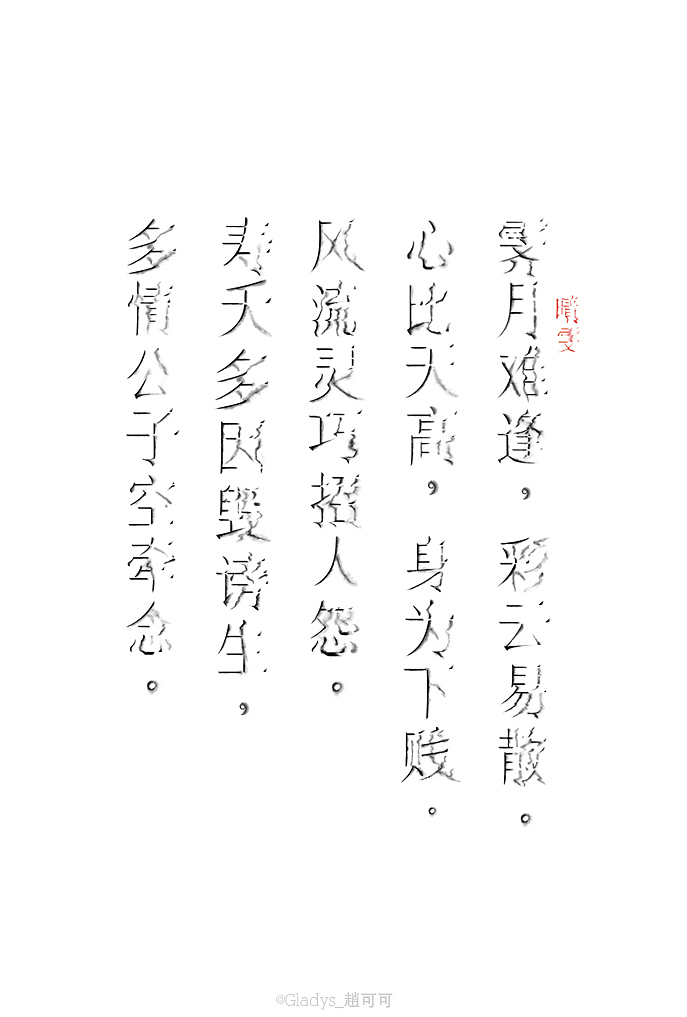 晴雯
霁月难逢，彩云易散。
心比天高，身为下贱。
风流灵巧招人怨。
寿夭多因毁谤生，
多情公子空牵念。
@Gladys_趙可可